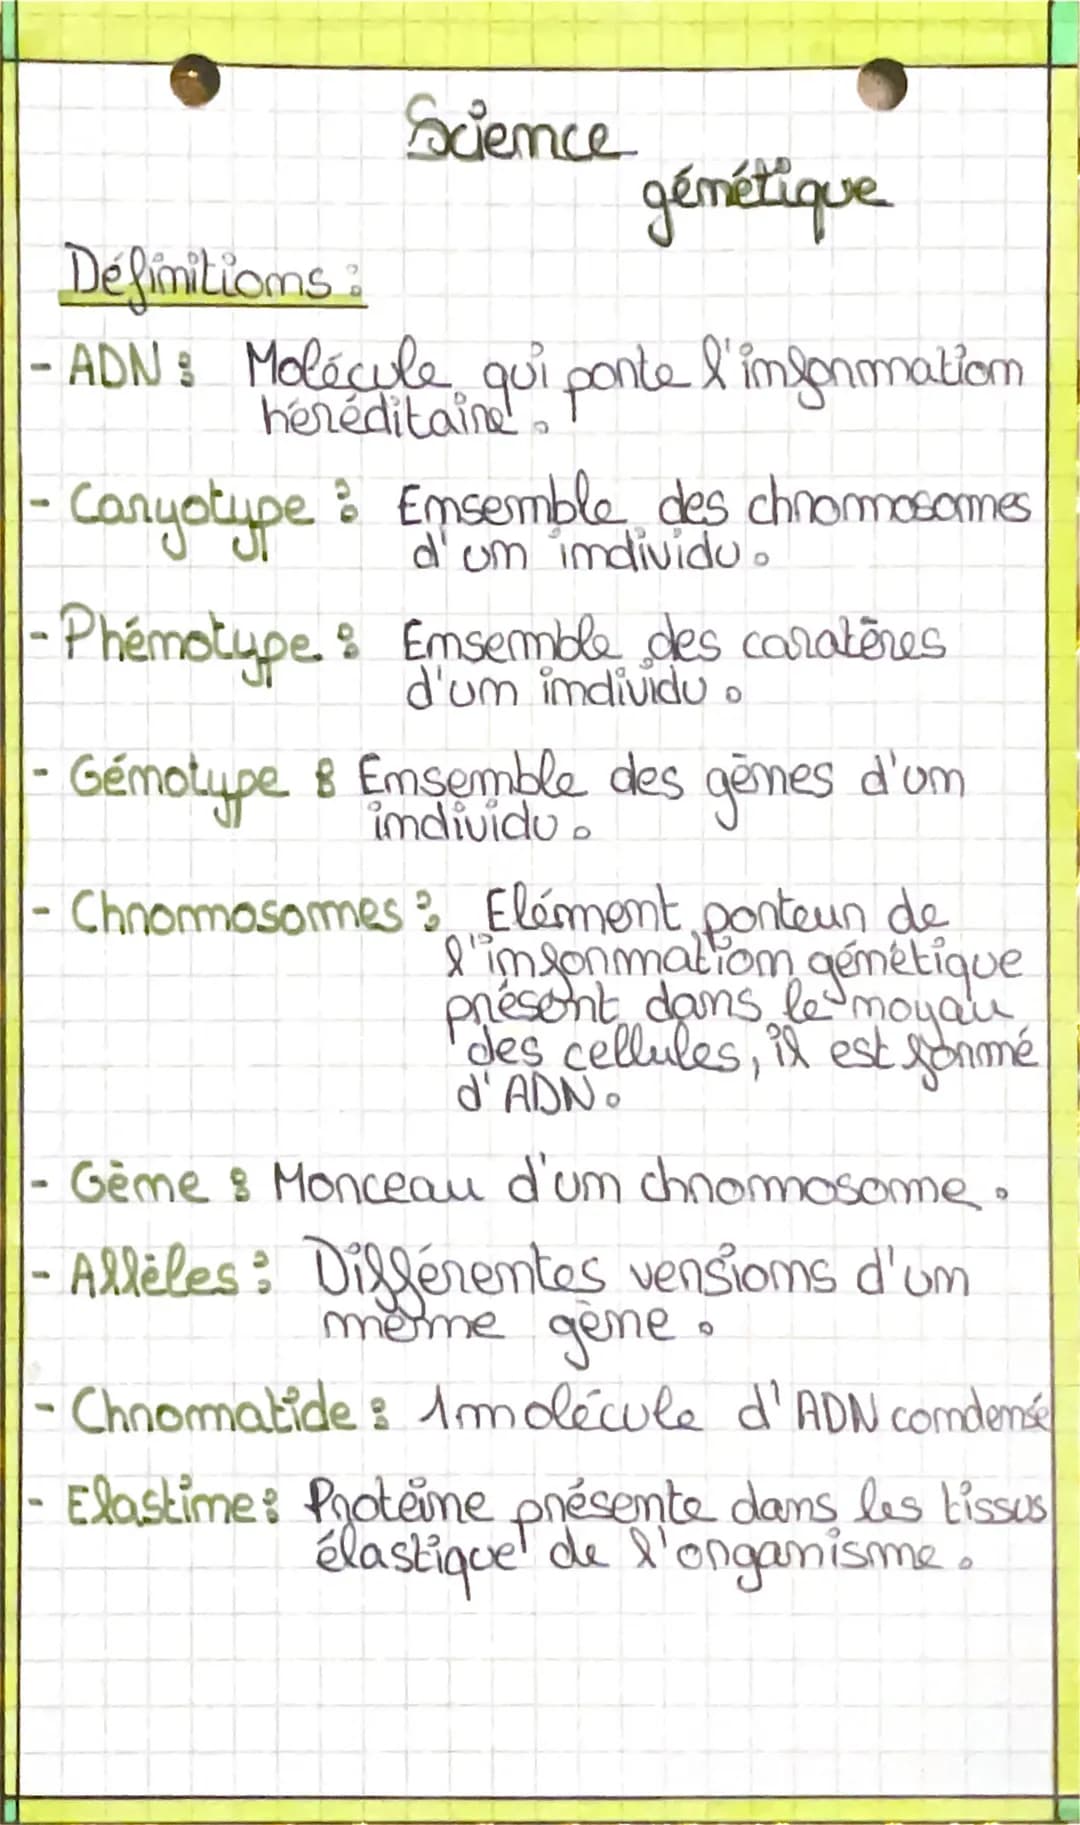 Science
génétique
Définitions :
- ADN : Molécule qui porte l'information
héréditaire.
- Caryotype : Ensemble des chromosomes
d'un individu.
- Phénotype : Ensemble des caratères
d'un individu.
- Génotype : Ensemble des gènes d'un
individu.
- Chromosomes : Elément porteur de
l'information génétique
présent dans le noyau
des cellules, il est formé
d'ADN.
- Gène : Morceau d'un chromosome.
- Allèles : Différentes versions d'un
même gène.
- Chromatide : 1 molécule d'ADN condensé
- Elastine : Protéine présente dans les tissus
élastique de l'organisme.